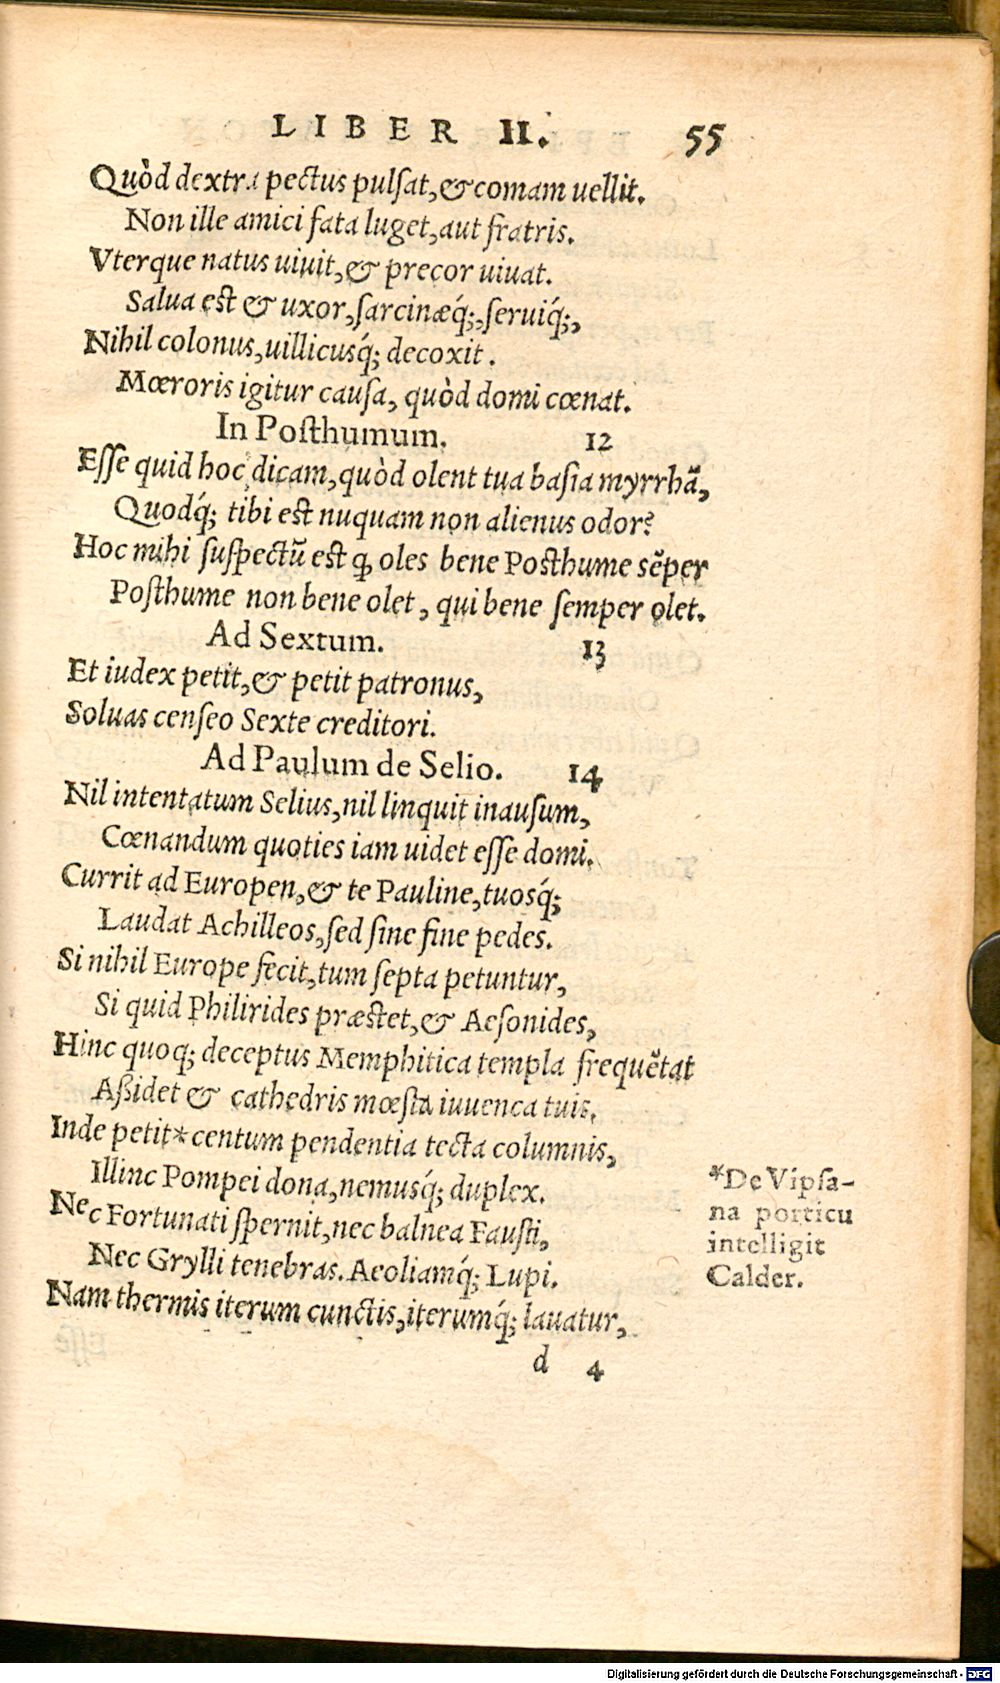 LIBER II. 55
Quòd dextra pectus pulſat, & comam uellit.
Non ille amici fata luget, aut fratris.
Vterque natus uiuit, & precor uiuat.
Salua eſt & uxor, ſarcinæq́;, ſeruiq́;,
Nihil colonus, uillicusq́; decoxit.
Mœroris igitur cauſa, quòd domi cœnat.
In Poſthumum. 12
Eſſe quid hoc dicam, quòd olent tua baſia myrrhã,
Quodq́; tibi eſt nuquam non alienus odor?
Hoc mihi ſuſpectũ eſt ꝙ oles bene Poſthume sẽper
Poſthume non bene olet, qui bene ſemper olet.
Ad Sextum. 13
Et iudex petit, & petit patronus,
Soluas cenſeo Sexte creditori.
Ad Paulum de Selio. 14
Nil intentatum Selius, nil linquit inauſum,
Cœnandum quoties iam uidet eſſe domi.
Currit ad Europen, & te Pauline, tuosq́;
Laudat Achilleos, ſed ſine fine pedes.
Si nihil Europe fecit, tum ſepta petuntur,
Si quid Philirides præſtet, & Aeſonides,
Hinc quoq; deceptus Memphitica templa frequẽtat
Aßidet & cathedris mœſta iuuenca tuis.
Inde petit * centum pendentia tecta columnis,
Illinc Pompei dona, nemusq́; duplex.
Nec Fortunati ſpernit, nec balnea Fauſti,
Nec Grylli tenebras. Aeoliamq́; Lupi.
Nam thermis iterum cunctis, iterumq́; lauatur,
d 4
*De Vipſa-
na porticu
intelligit
Calder.
Digitalisierung gefördert durch die Deutsche Forschungsgemeinschaft - DFG